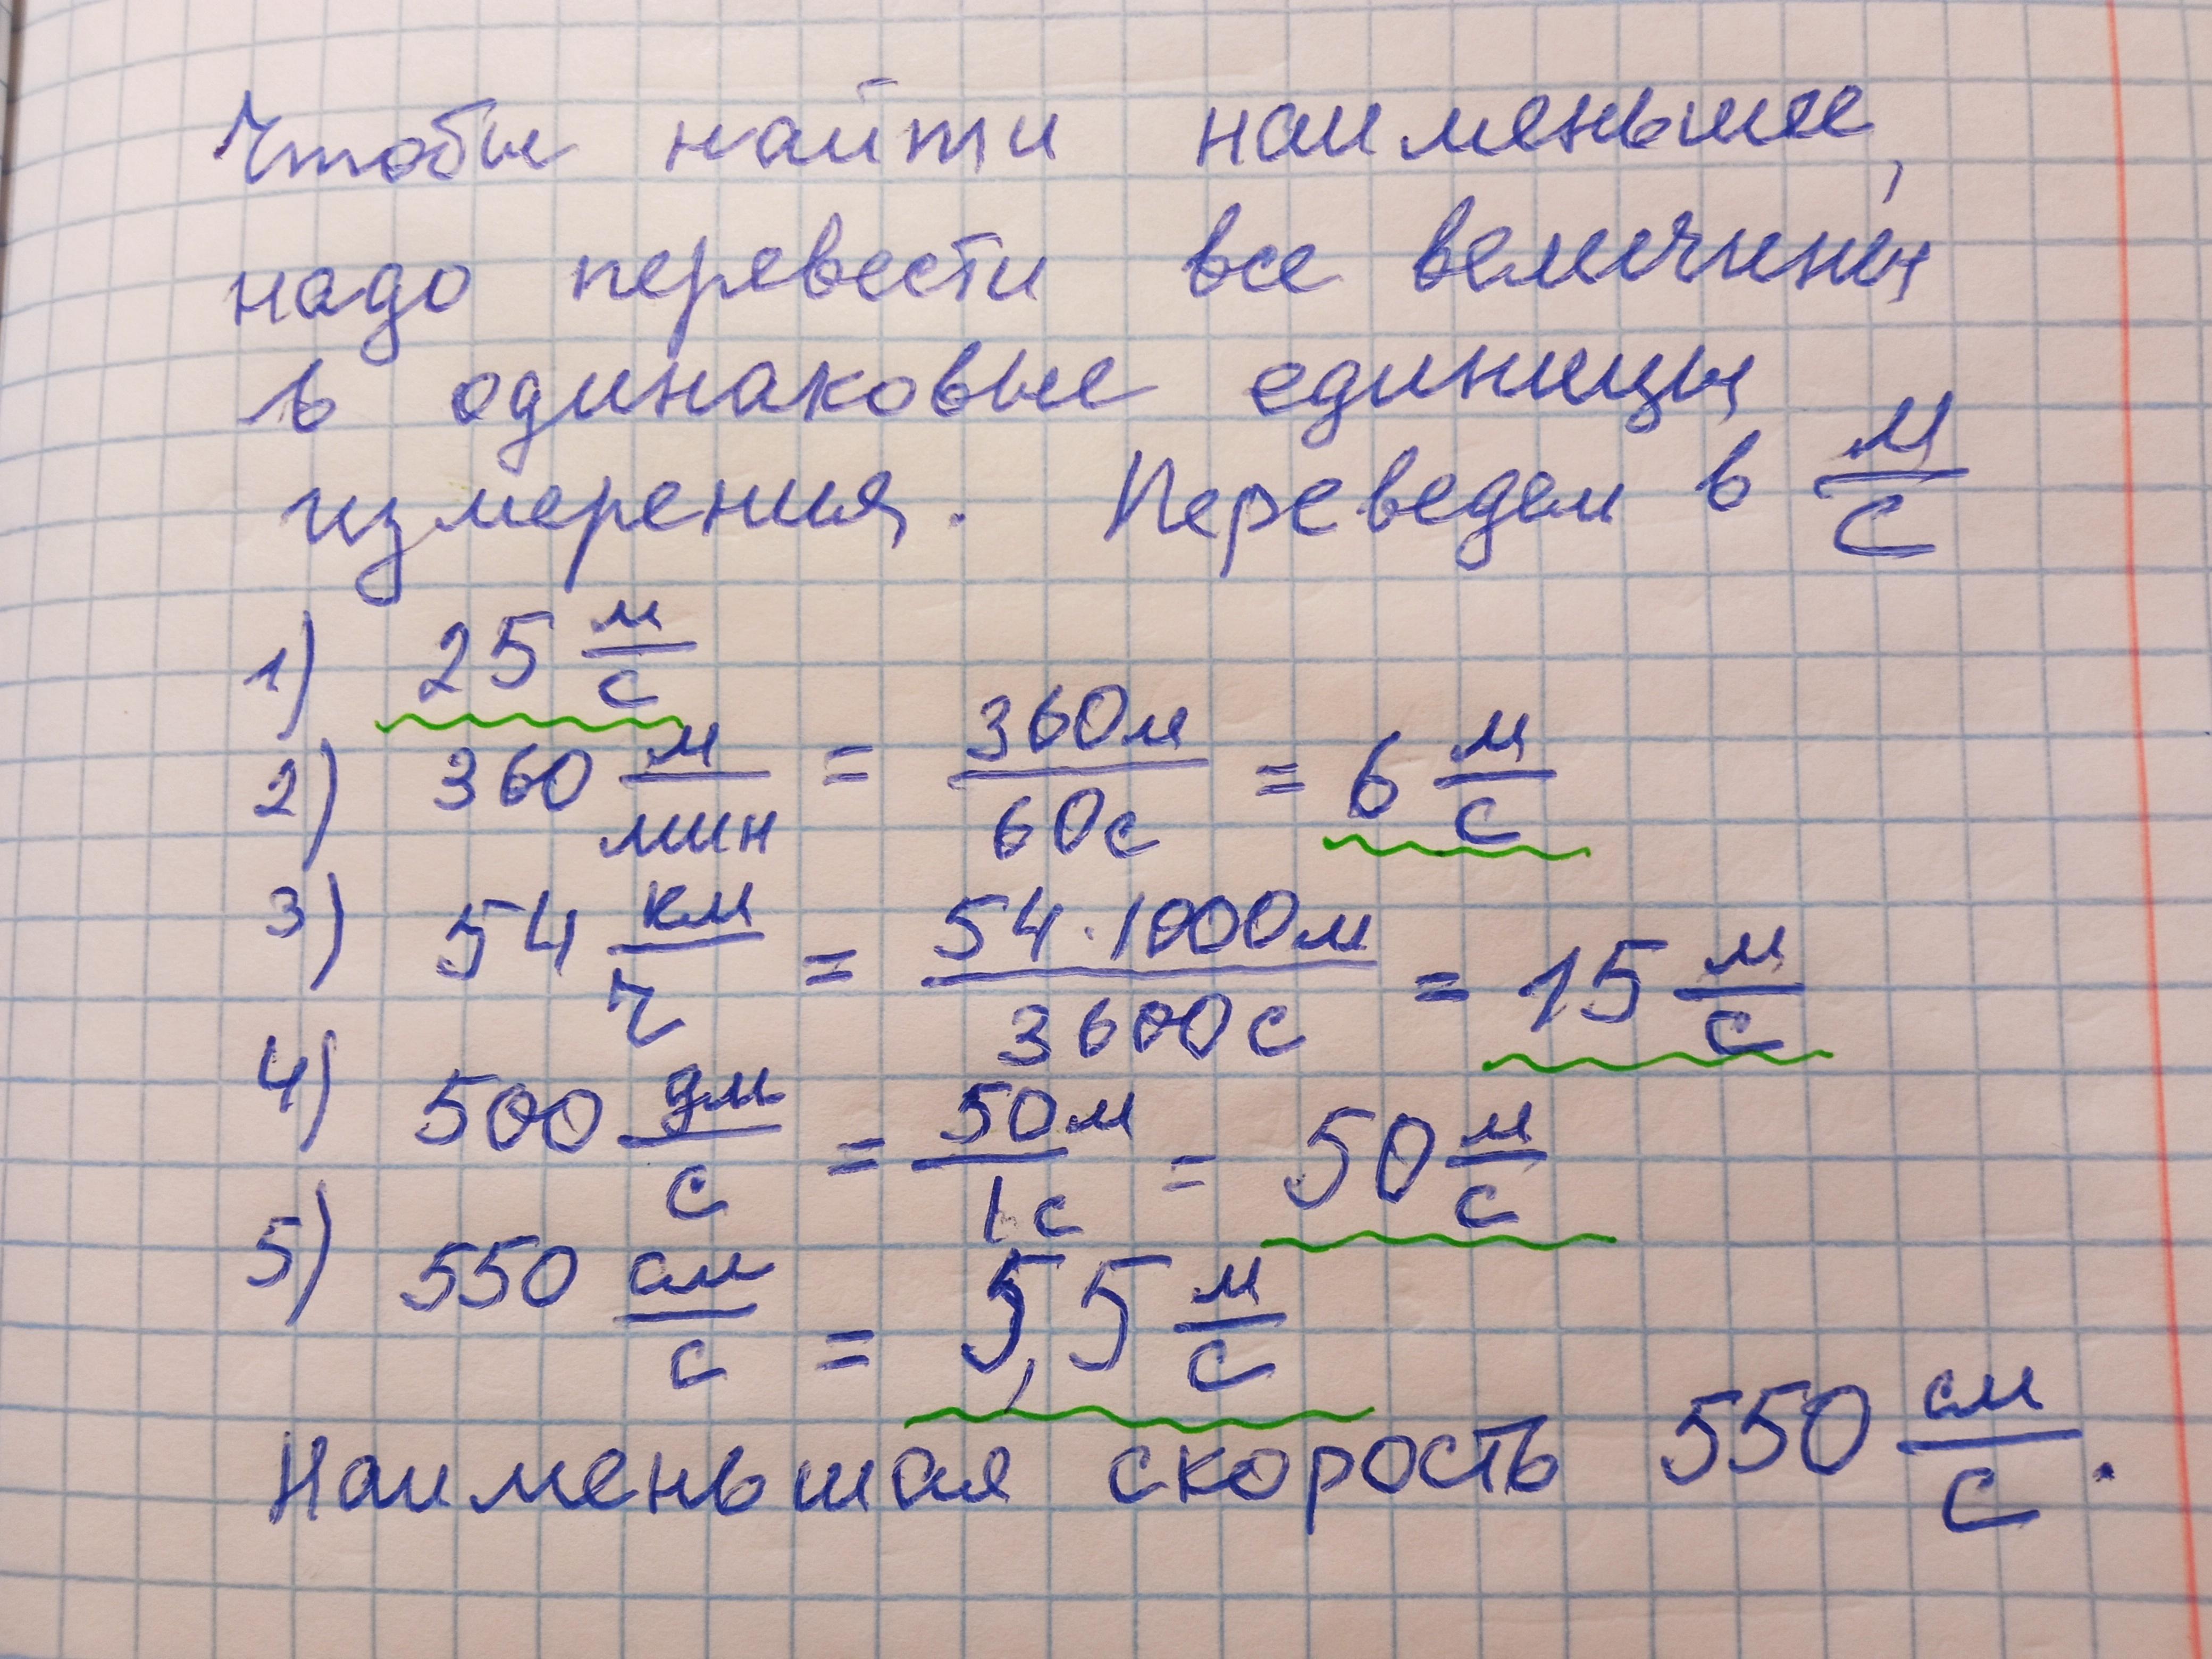 Чтобы найти наименьшее,
надо перевести все величины
в одинаковые единицы
измерения. Переведем в м/с
1) 25 м/с
2) 360 м/мин = 360м/60с = 6 м/с
3) 54 км/ч = 54·1000м/3600с = 15 м/с
4) 500 дм/с = 50м/1с = 50 м/с
5) 550 см/с = 5,5 м/с
Наименьшая скорость 550 см/с.